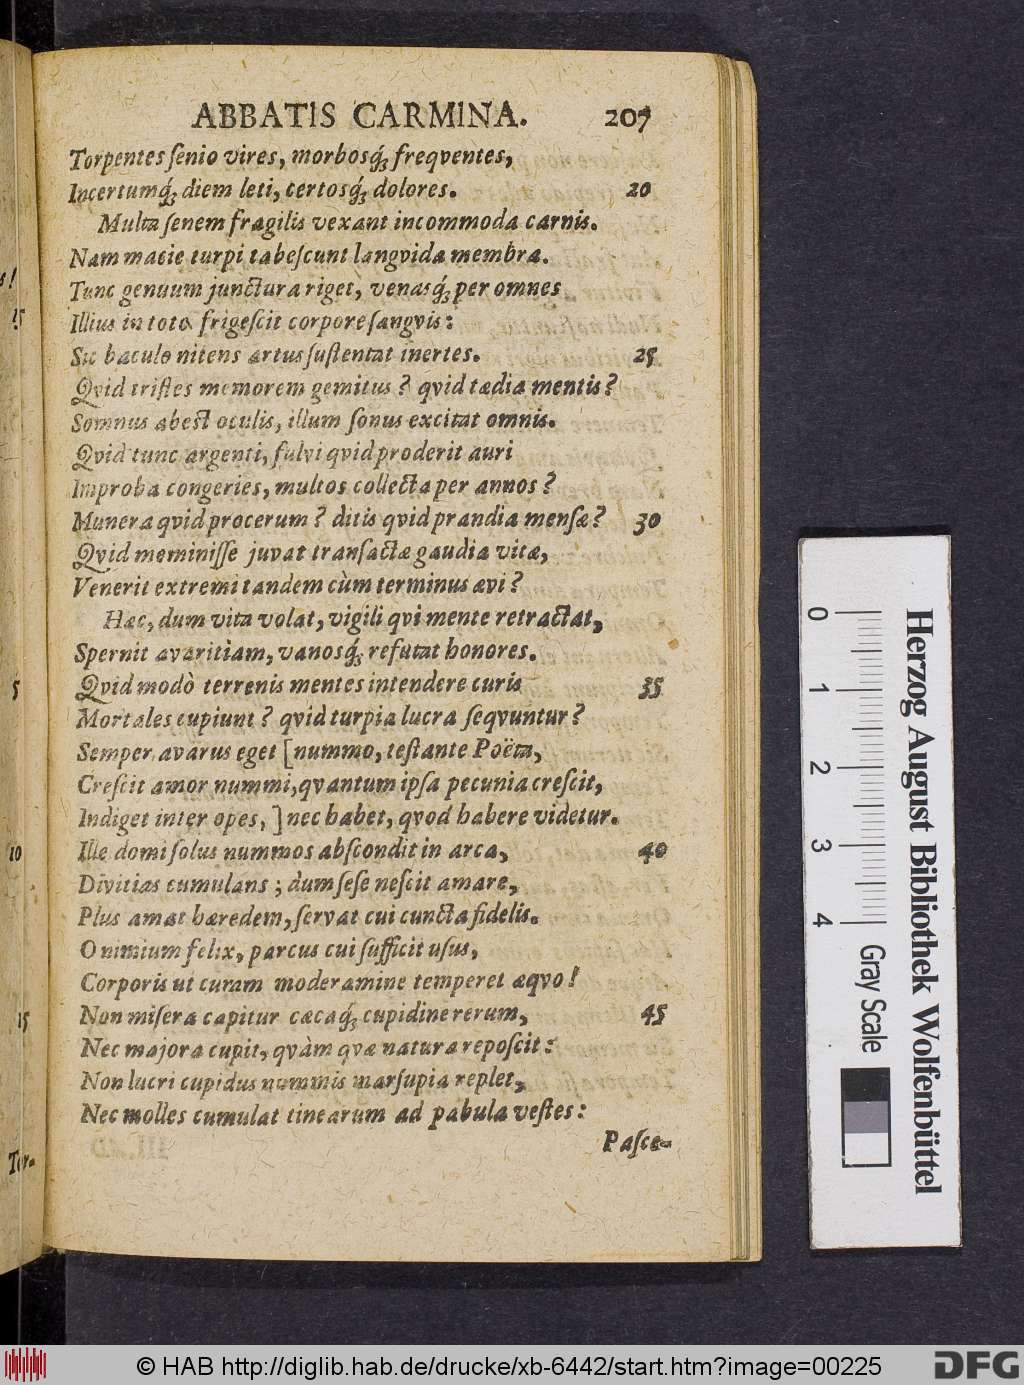 ABBATIS CARMINA. 207
Torpentes ſenio vires, morbosq́ꝫ freqventes,
Incertumq́ꝫ diem leti, certosq́ꝫ dolores. 20
Multa ſenem fragilis vexant incommoda carnis.
Nam macie turpi tabeſcunt langvida membra.
Tunc genuum junctura riget, venasq́ꝫ per omnes
Illius in toto frigeſcit corpore ſangvis:
Sic baculo nitens artus ſuſtentat inertes. 25
Qvid triſtes memorem gemitus? qvid tædia mentis?
Somnus abeſt oculis, illum ſonus excitat omnis.
Qvid tunc argenti, fulvi qvid proderit auri
Improba congeries, multos collecta per annos?
Munera qvid procerum? ditis qvid prandia menſæ? 30
Qvid meminiſſe juvat tranſactæ gaudia vitæ,
Venerit extremi tandem cùm terminus ævi?
Hæc, dum vita volat, vigili qvi mente retractat,
Spernit avaritiam, vanosq́ꝫ refutat honores.
Qvid modò terrenis mentes intendere curis 35
Mortales cupiunt? qvid turpia lucra ſeqvuntur?
Semper avarus eget [nummo, teſtante Poëta,
Creſcit amor nummi, qvantum ipſa pecunia creſcit,
Indiget inter opes,] nec habet, qvod habere videtur.
Ille domi ſolus nummos abſcondit in arca, 40
Divitias cumulans; dum ſeſe neſcit amare,
Plus amat hæredem, ſervat cui cuncta fidelis.
O nimium felix, parcus cui ſufficit uſus,
Corporis ut curam moderamine temperet æqvo!
Non miſera capitur cæcaq́ꝫ cupidine rerum, 45
Nec majora cupit, qvàm qvæ natura repoſcit:
Non lucri cupidus nummis marſupia replet,
Nec molles cumulat tinearum ad pabula veſtes:
Paſce-
s!
15
5
10
15
Tor-
0 1 2 3 4
Gray Scale
Herzog August Bibliothek Wolfenbüttel
© HAB http://diglib.hab.de/drucke/xb-6442/start.htm?image=00225
DFG